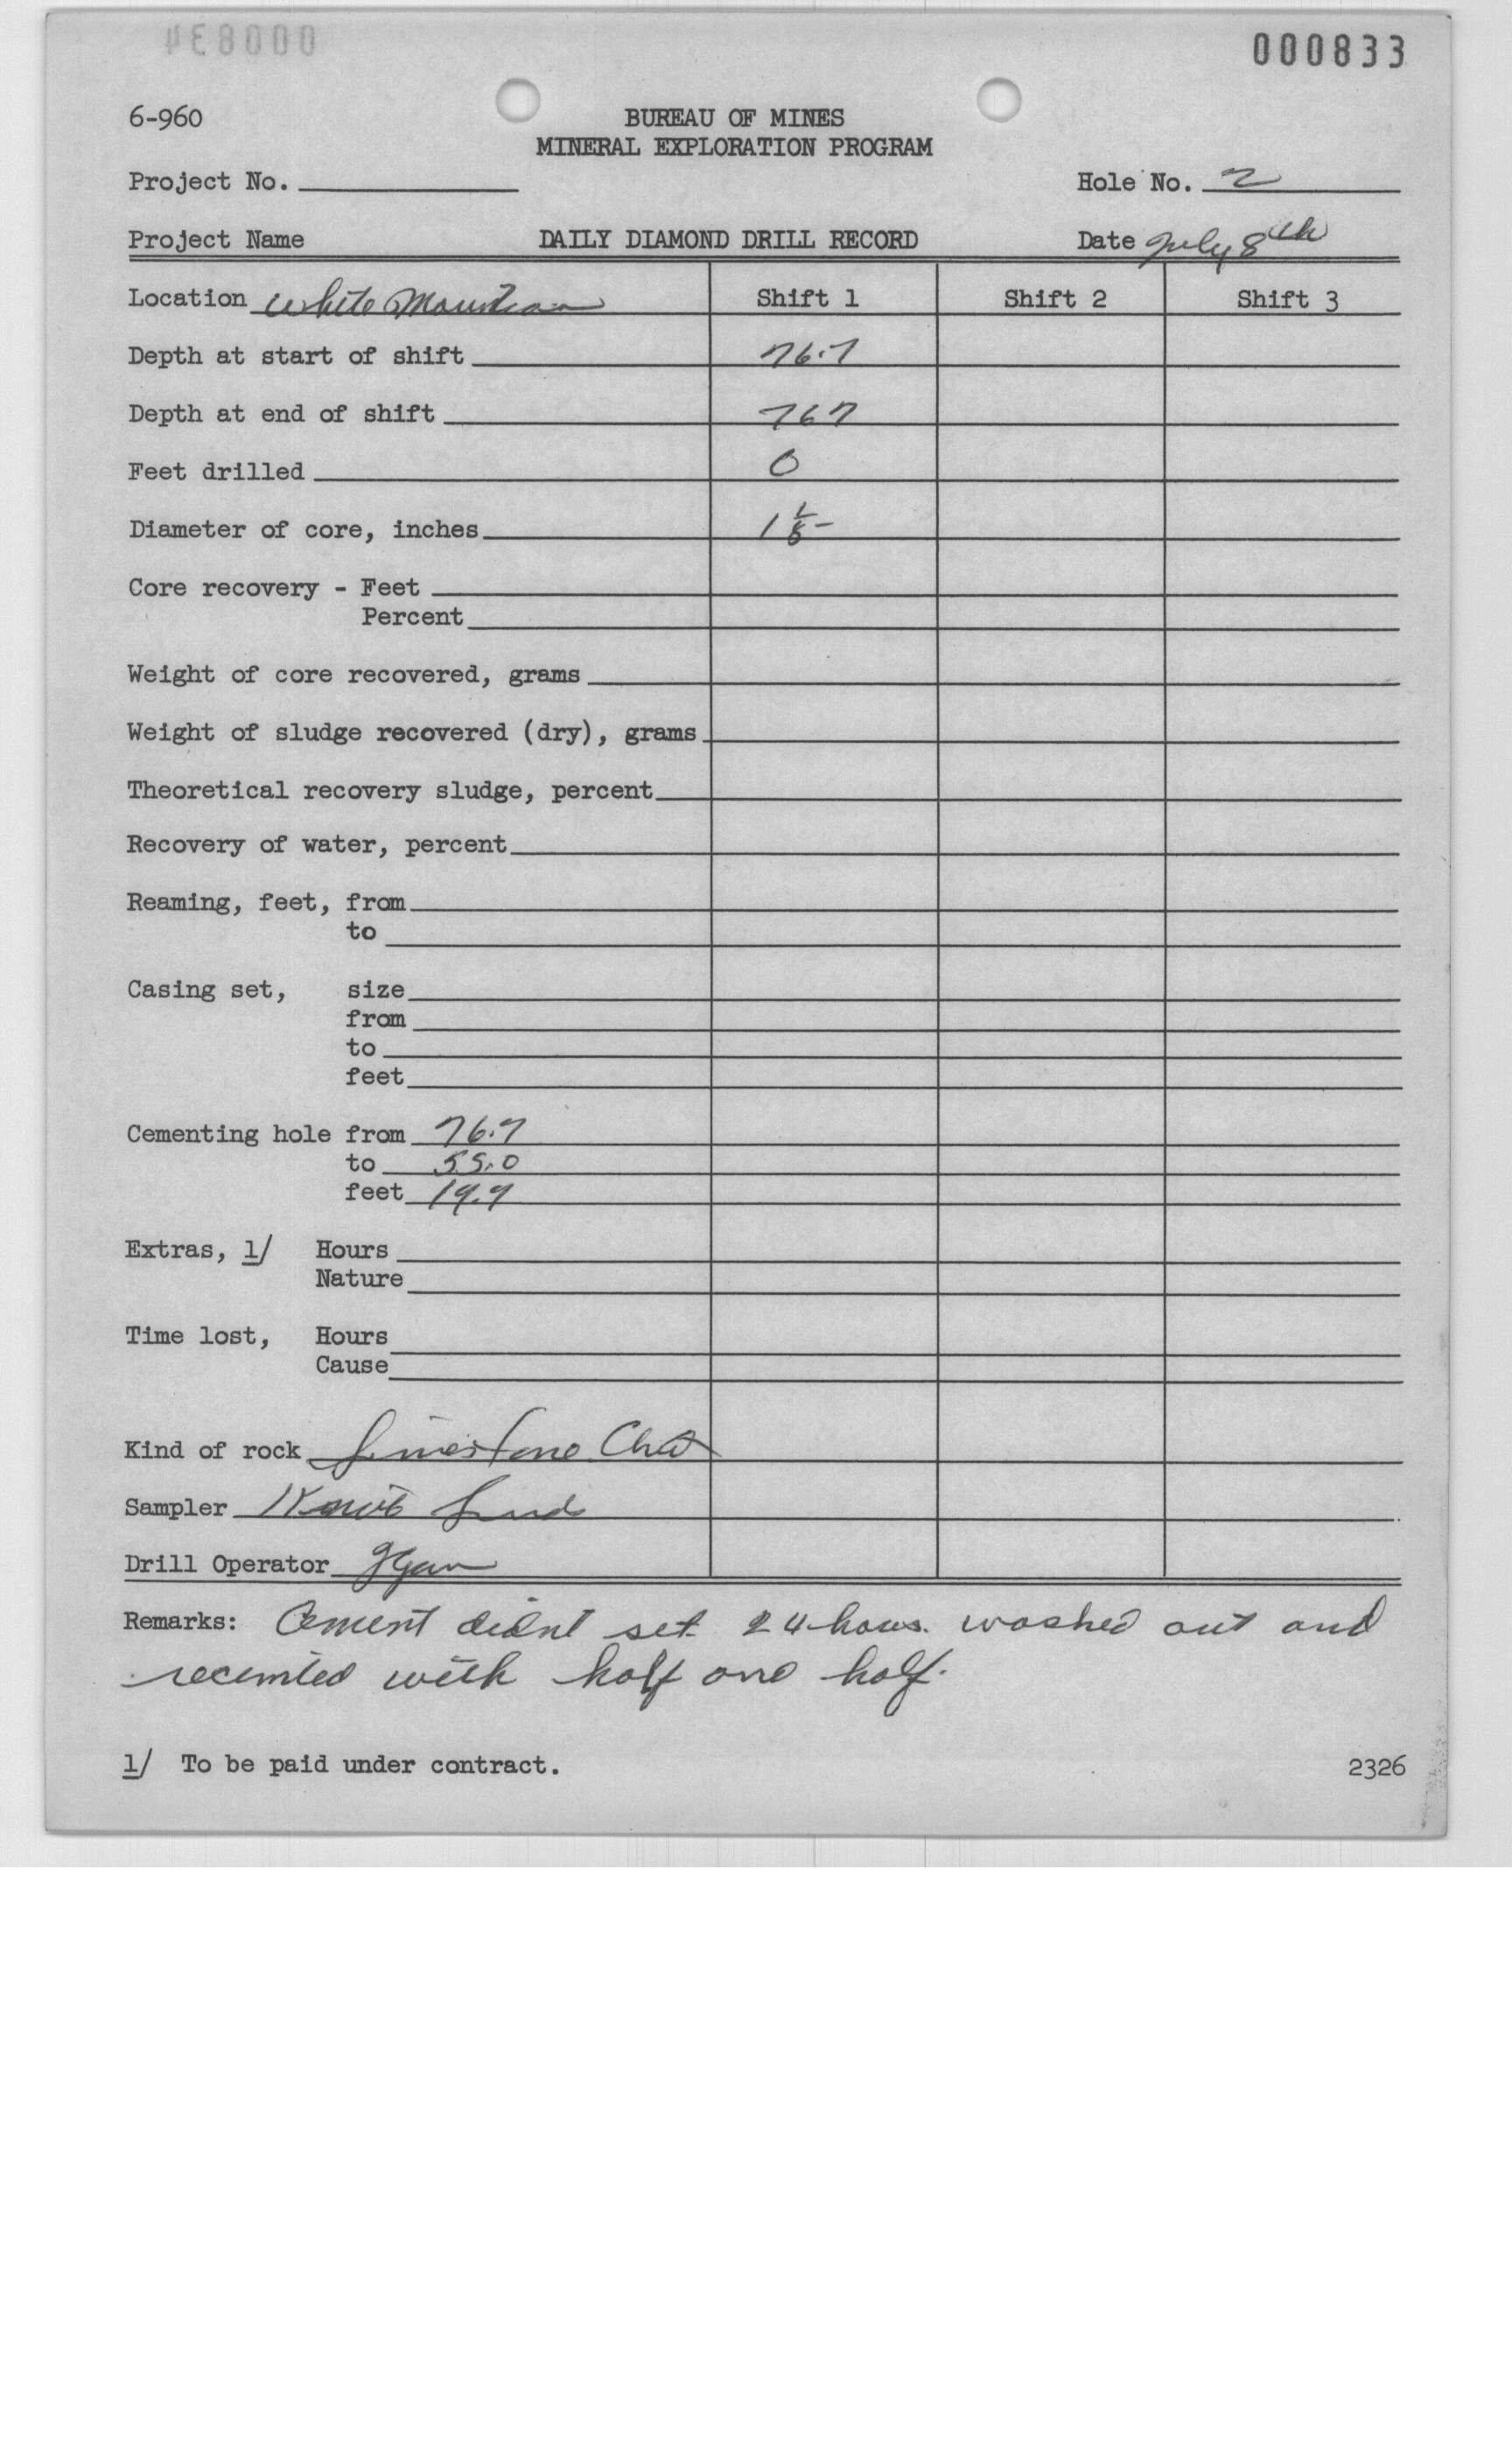 000833
6-960
BUREAU OF MINES
MINERAL EXPLORATION PROGRAM
Project No. Hole No. 2
Project Name DAILY DIAMOND DRILL RECORD Date July 8th
Location White Mountain Shift 1 Shift 2 Shift 3
Depth at start of shift 76.7
Depth at end of shift 767
Feet drilled 0
Diameter of core, inches 1 1/8
Core recovery - Feet
Percent
Weight of core recovered, grams
Weight of sludge recovered (dry), grams
Theoretical recovery sludge, percent
Recovery of water, percent
Reaming, feet, from
to
Casing set, size
from
to
feet
Cementing hole from 76.7
to 55.0
feet 19.7
Extras, 1/ Hours
Nature
Time lost, Hours
Cause
Kind of rock Limestone
Sampler
Drill Operator
Remarks: Cement didnt set 24 hours. washed out and
recemted with half one half.
1/ To be paid under contract.
2326